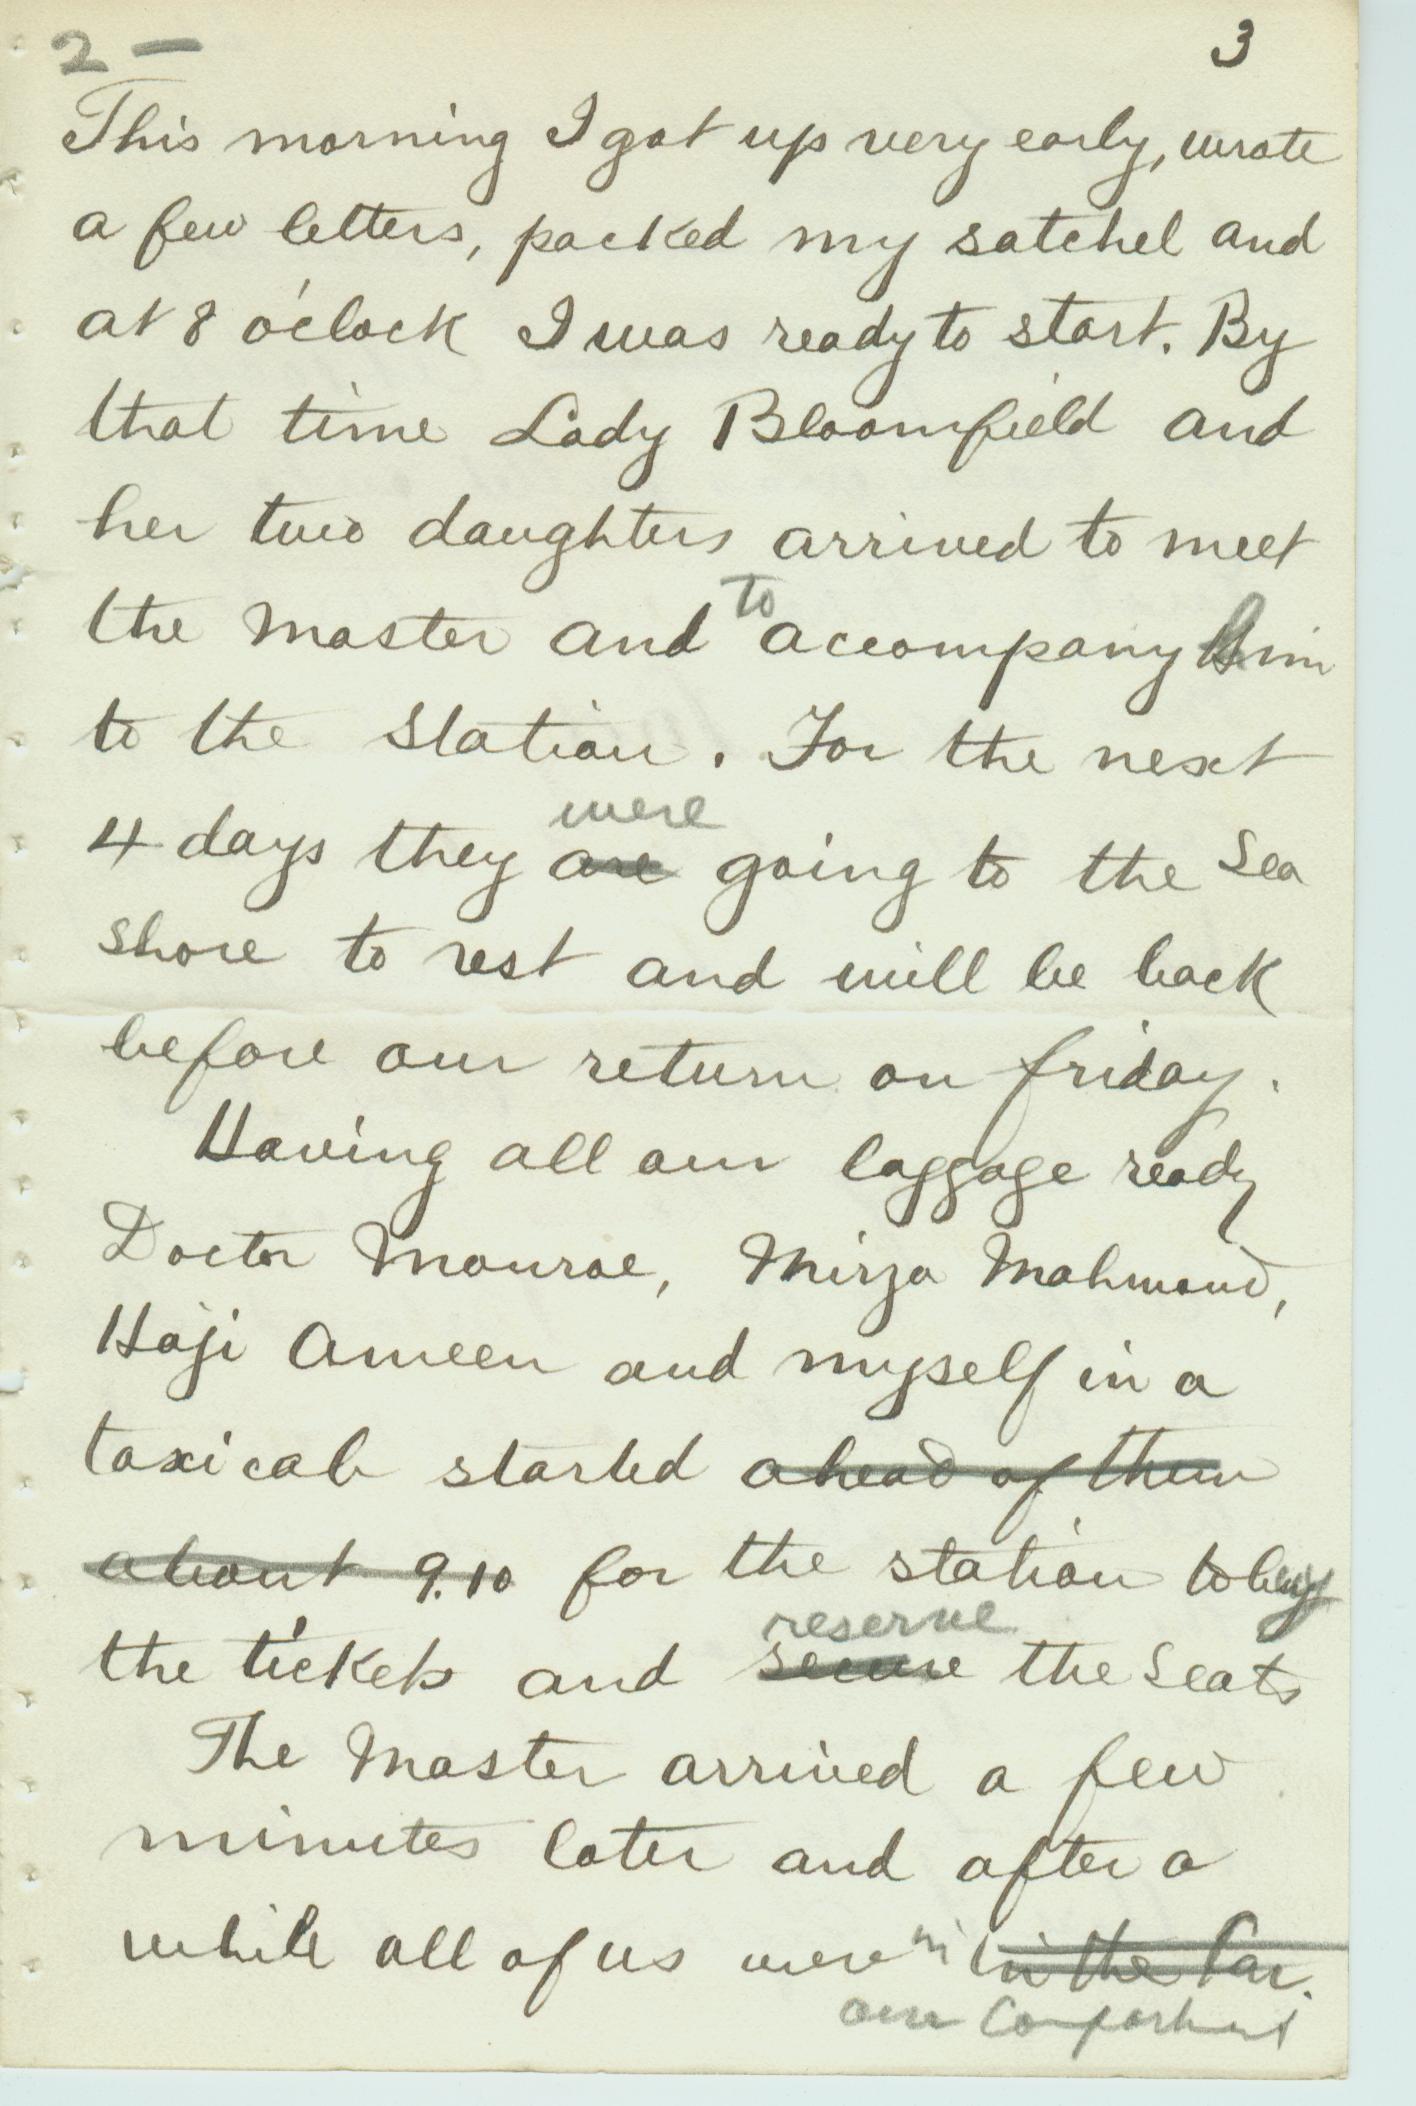 2 — 3
This morning I got up very early, wrote
a few letters, packed my satchel and
at 8 o'clock I was ready to start. By
that time Lady Bloomfield and
her two daughters arrived to meet
to
the Master and accompany Him
to the station. For the next
were
4 days they are going to the Sea
shore to rest and will be back
before our return on friday.
Having all our laggage ready
Doctor Monroe, Mirza Mahmoud,
Haji Ameen and myself in a
taxicab started ahead of them
about 9.10 for the station to buy
reserve
the tickets and secure the seats
The Master arrived a few
minutes later and after a
while all of us were in in the Car.
our Compartment